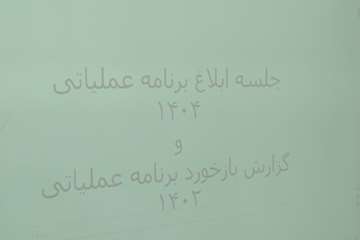 جلسه ابلاغ برنامه عملیاتی
۱۴۰۴
و
گزارش بازخورد برنامه عملیاتی
۱۴۰۲